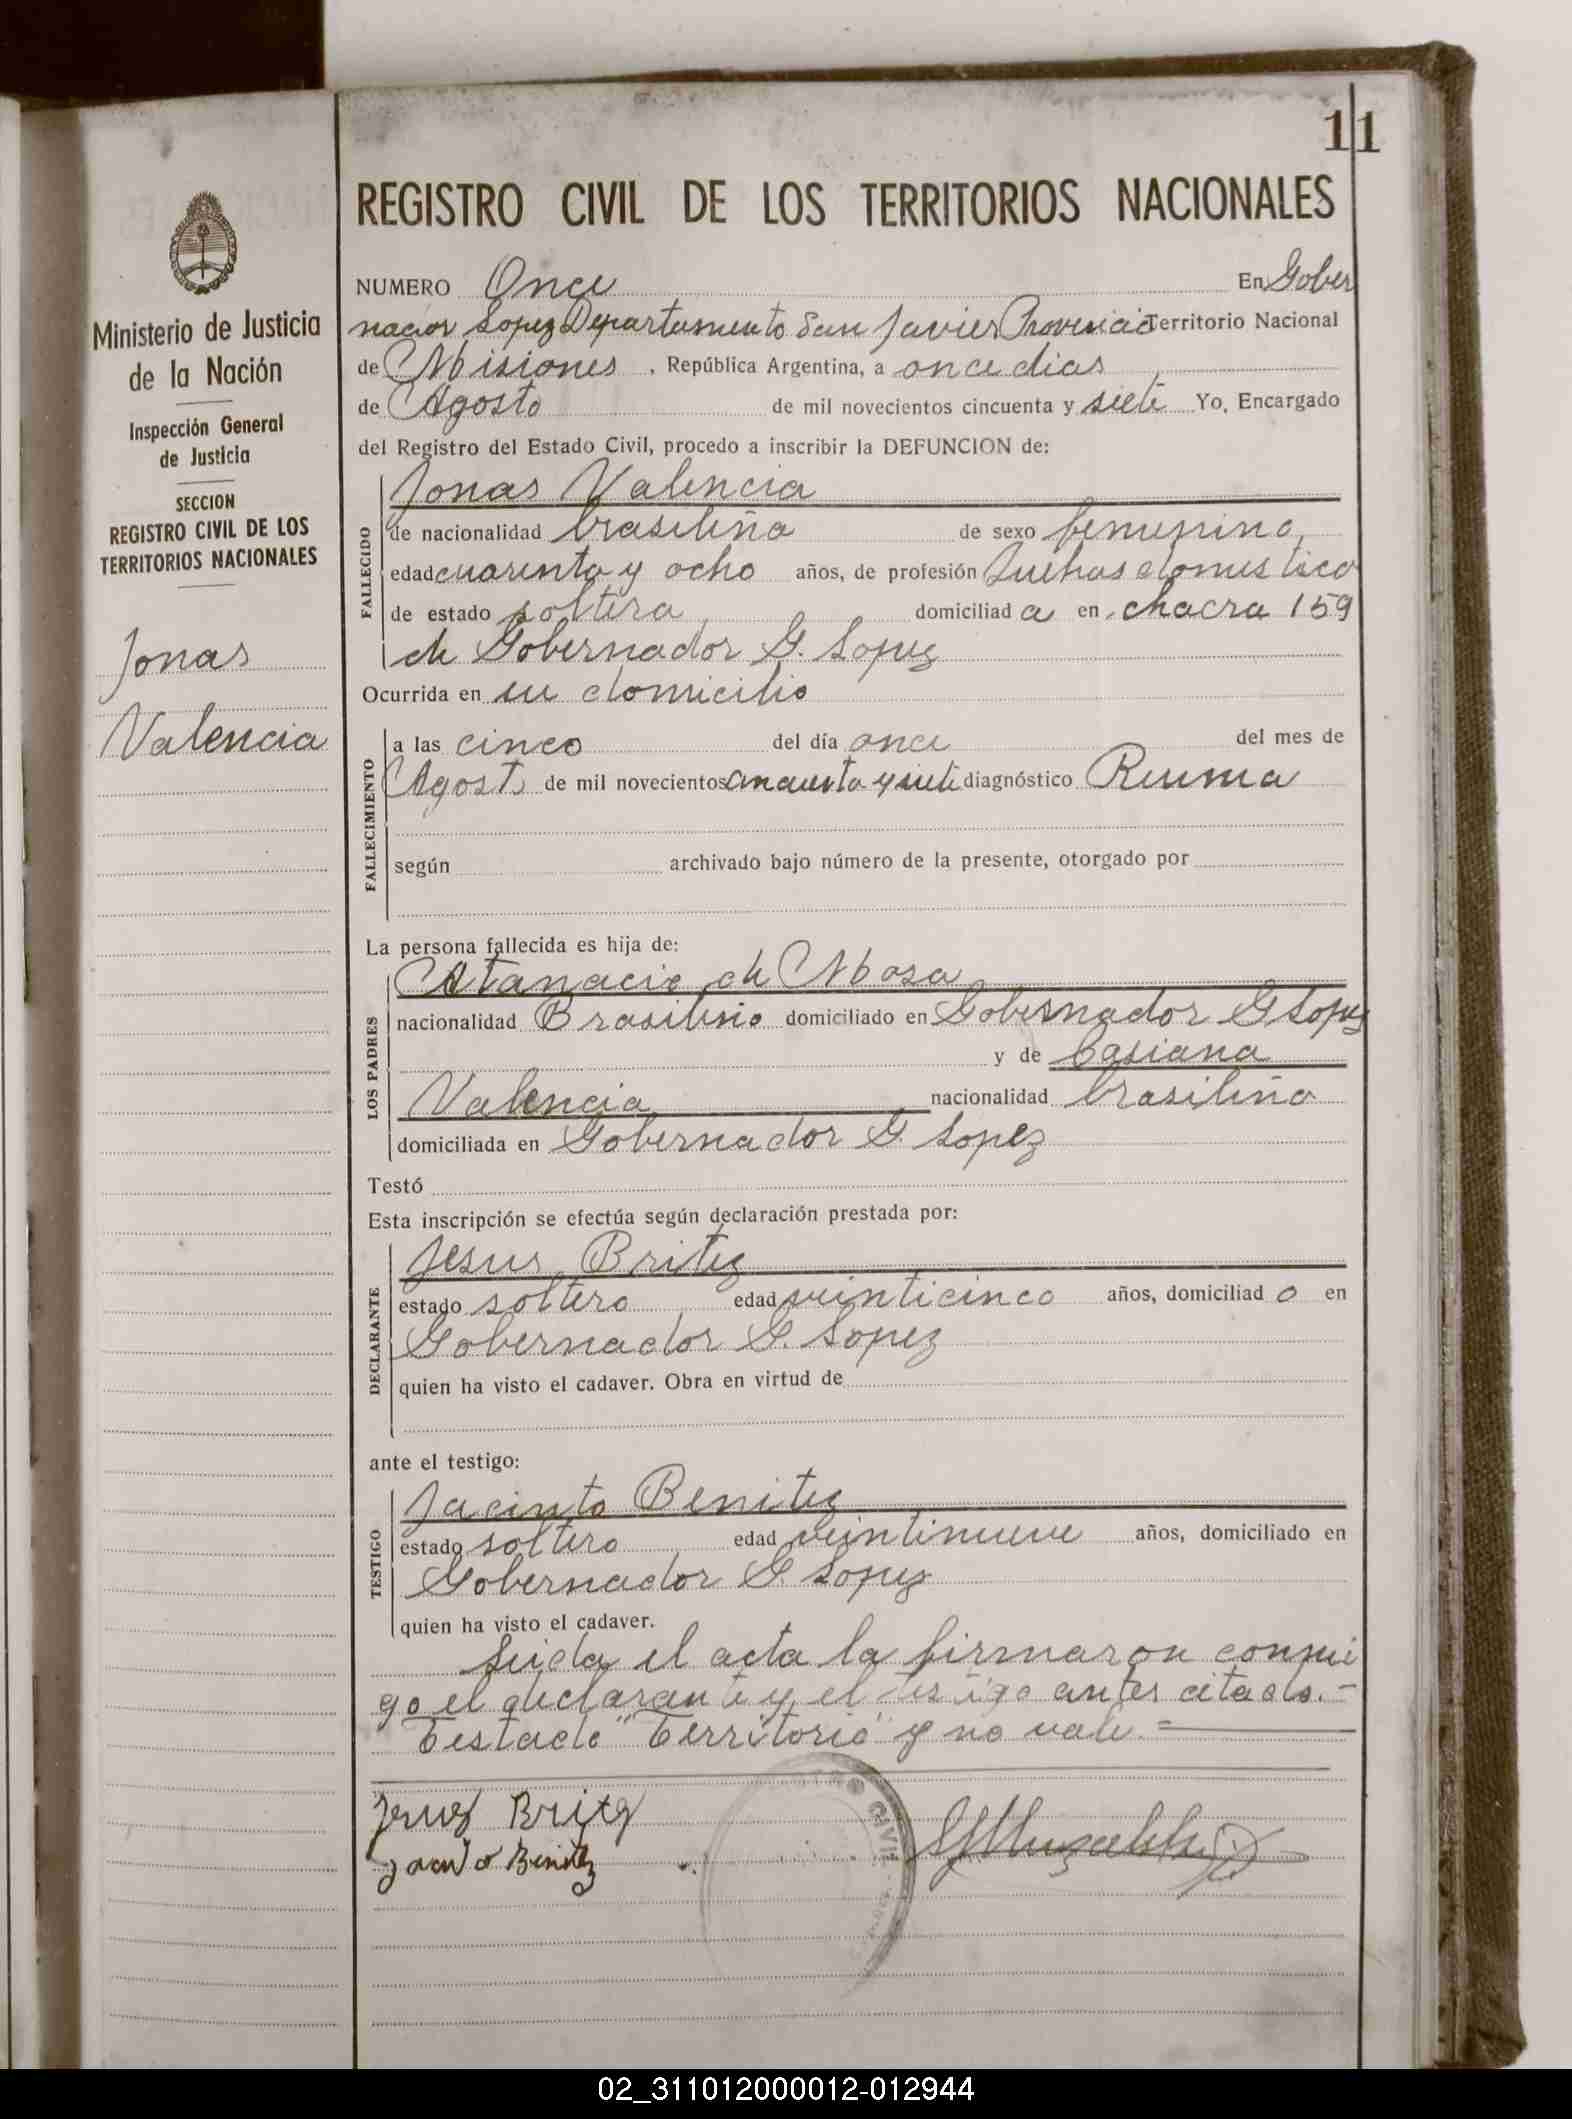 11
REGISTRO CIVIL DE LOS TERRITORIOS NACIONALES
Ministerio de Justicia
de la Nación
Inspección General
de Justicia
SECCION
REGISTRO CIVIL DE LOS
TERRITORIOS NACIONALES
Jonas
Valencia
NUMERO Once En Gober
nador Lopez Departamento San Javier Provincia Territorio Nacional
de Misiones, República Argentina, a once dias
de Agosto de mil novecientos cincuenta y siete Yo, Encargado
del Registro del Estado Civil, procedo a inscribir la DEFUNCION de:
FALLECIDO
Jonas Valencia
de nacionalidad brasileña de sexo femenino,
edad cuarenta y ocho años, de profesión Quehas domestico
de estado soltera domiciliad a en chacra 159
de Gobernador G. Lopez
Ocurrida en su domicilio
FALLECIMIENTO
a las cinco del día once del mes de
Agosto de mil novecientos cincuenta y siete diagnóstico Reuma
según archivado bajo número de la presente, otorgado por
La persona fallecida es hija de:
LOS PADRES
Atanacio de Mosa
nacionalidad Brasileño domiciliado en Gobernador G Lopez
y de Casiana
Valencia nacionalidad brasileña
domiciliada en Gobernador G. Lopez
Testó
Esta inscripción se efectúa según declaración prestada por:
DECLARANTE
Jesus Britez
estado soltero edad veinticinco años, domiciliad o en
Gobernador G. Lopez
quien ha visto el cadaver. Obra en virtud de
ante el testigo:
TESTIGO
Jacinto Benitez
estado soltero edad veintinueve años, domiciliado en
Gobernador G. Lopez
quien ha visto el cadaver.
Leida el acta la firmaron conmi
go el declarante y el testigo antes citado.-
Testado "Territorio" y no vale.=
Jesus Britez
Jacinto Benitez
CIVIL
02_311012000012-012944